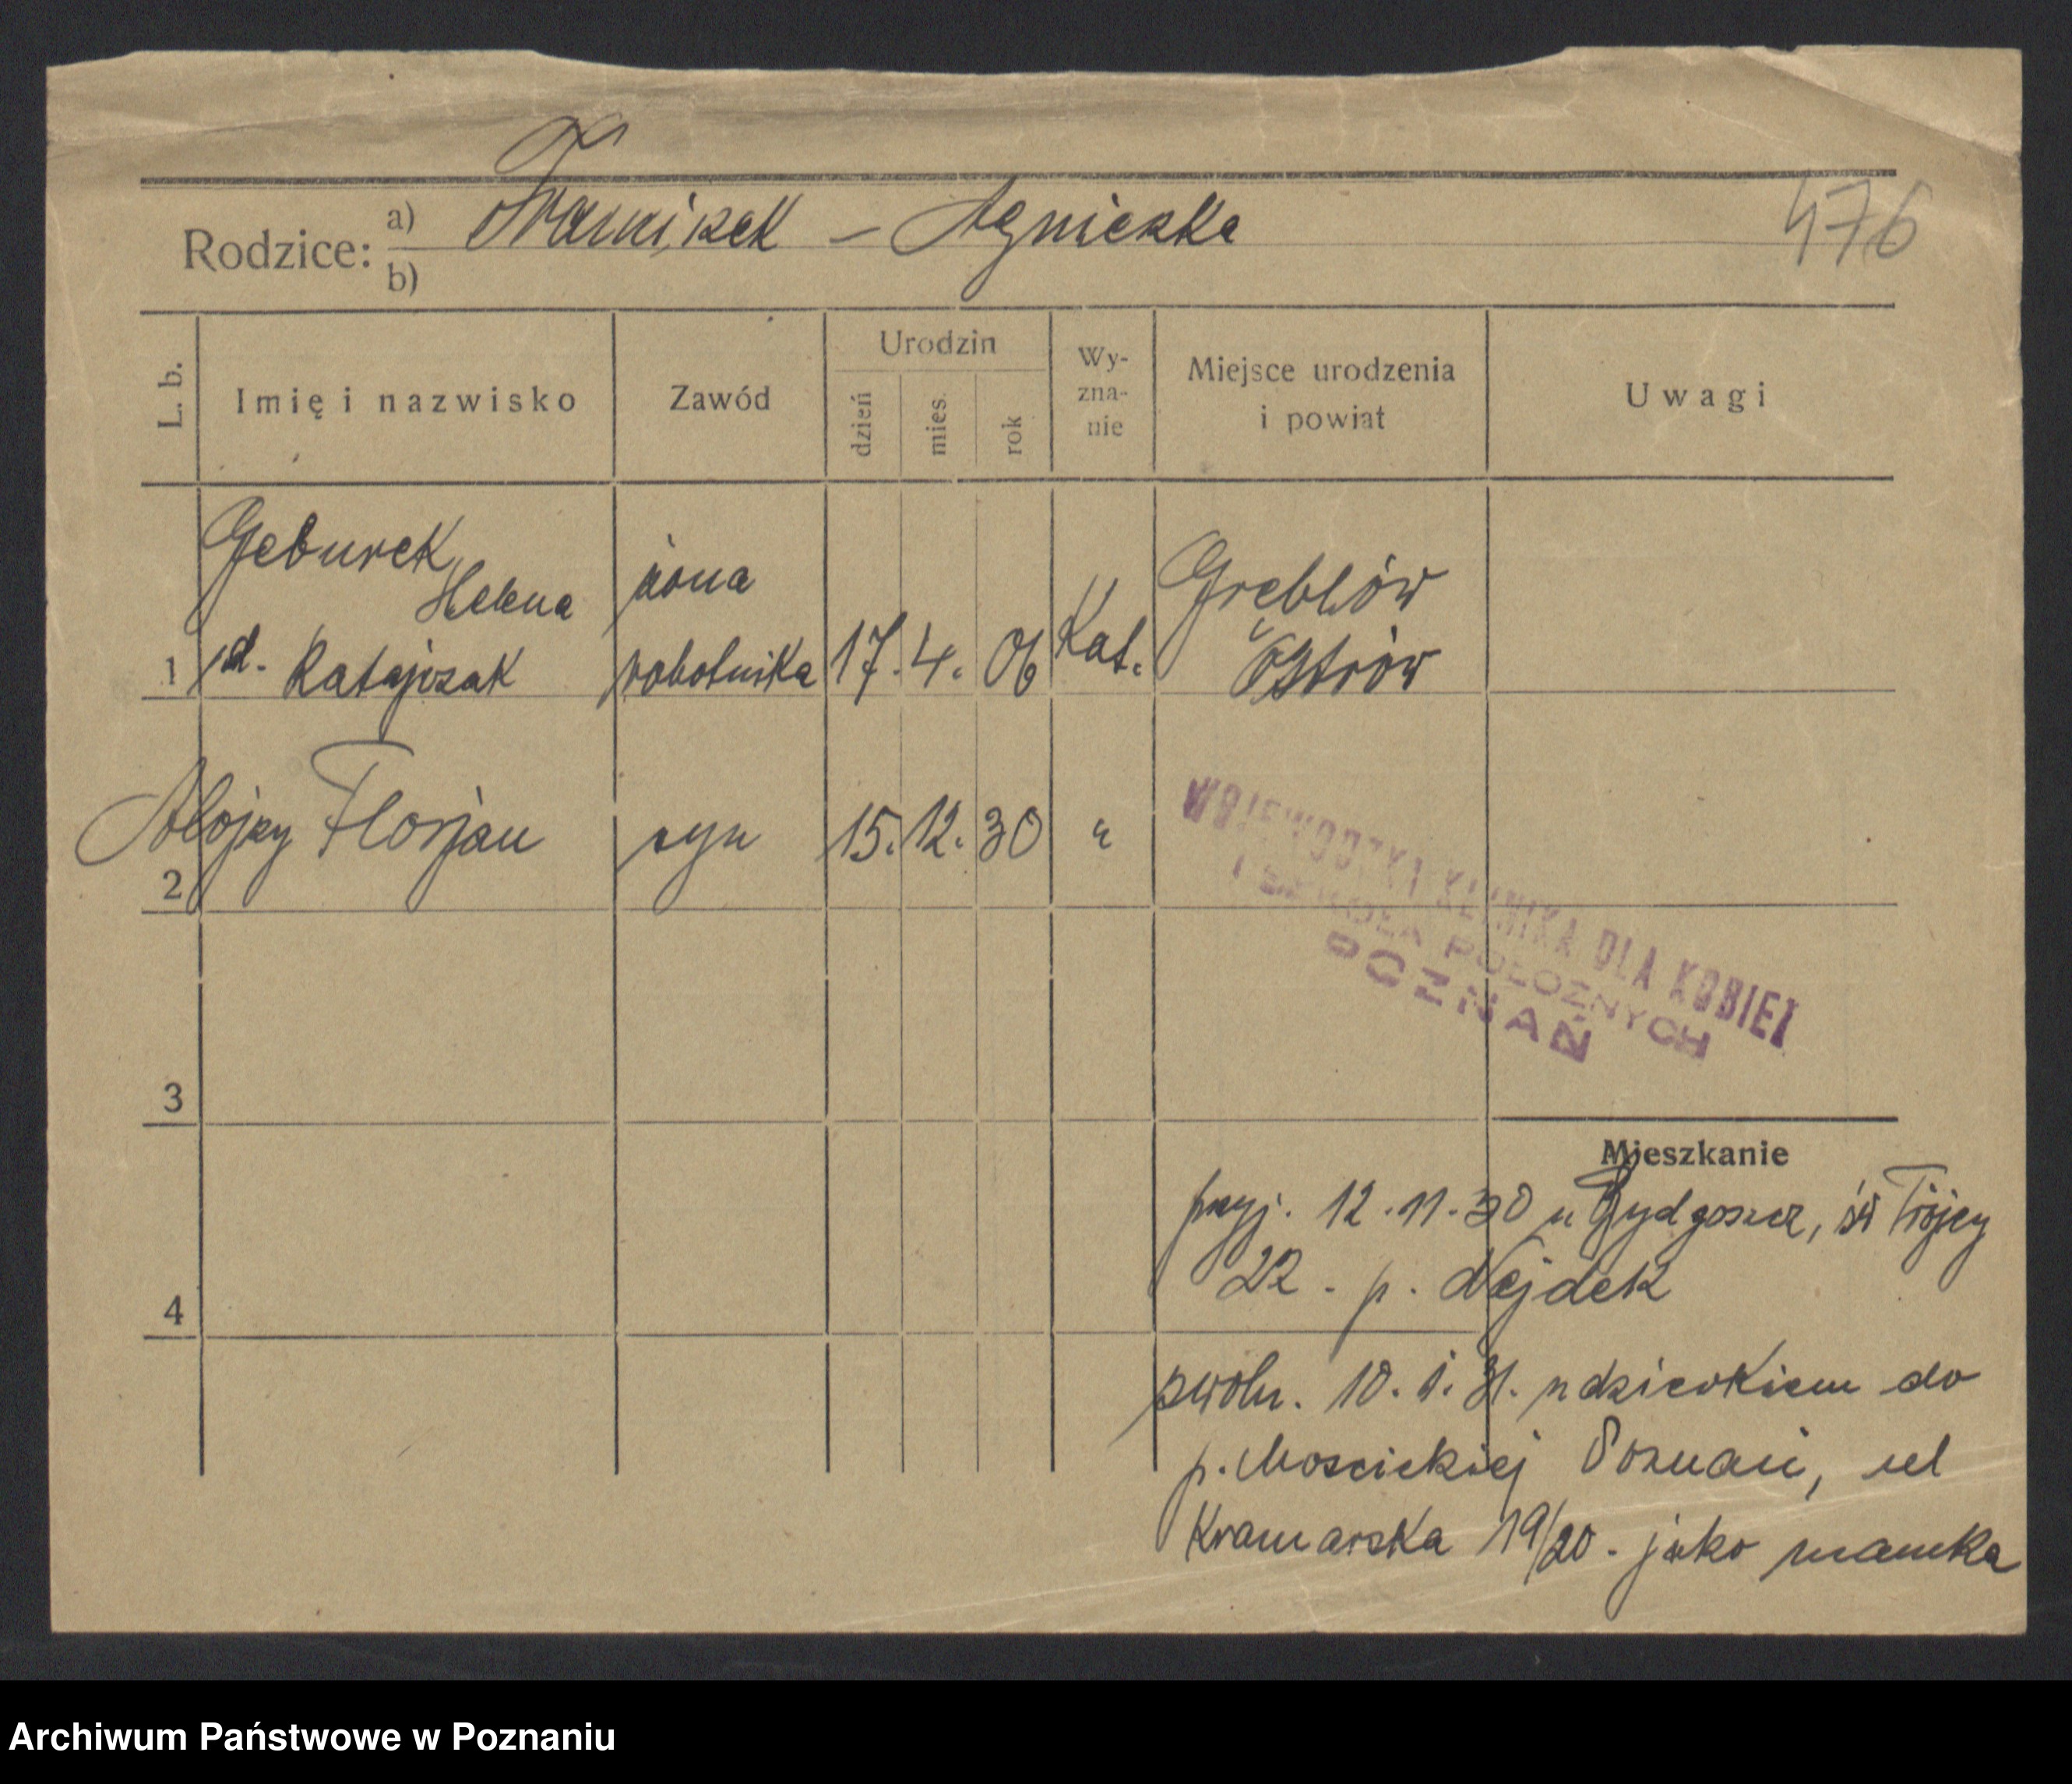 476
Rodzice: a) Franciszek – Agnieszka
b)
L. b.
Imię i nazwisko
Zawód
Urodzin
dzień
mies.
rok
Wy-
zna-
nie
Miejsce urodzenia
i powiat
Uwagi
Geburek żona Gręblów
Helena
1 zd. Ratajczak robotnika 17. 4. 06 Kat. Ostrów
Alojzy Florjan syn 15. 12. 30 "
2
WOJEWÓDZKA KLINIKA DLA KOBIET
I SZKOŁA POŁOŻNYCH
POZNAŃ
3
Mieszkanie
przyj. 12.11.30 z Bydgoszcz, św Trójcy
22 - p. Nejdek
4
zwoln. 10.1.31. z dzieckiem do
p. Mościckiej Poznań, ul
Kramarska 19/20. jako mamka
Archiwum Państwowe w Poznaniu